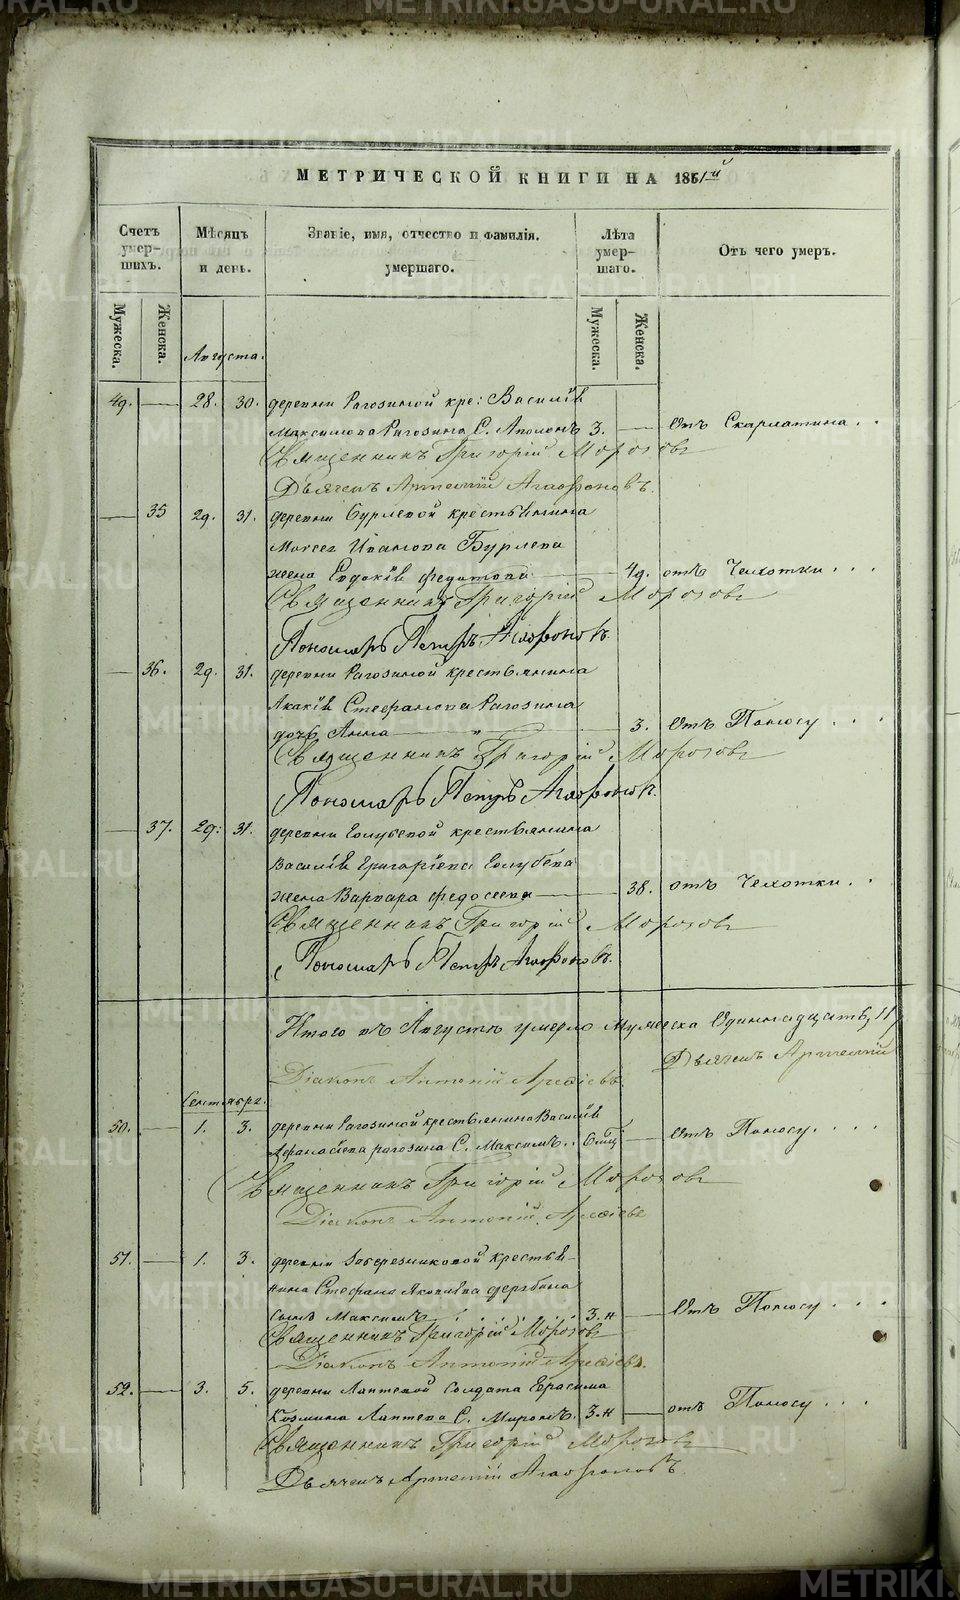 МЕТРИЧЕСКОЙ КНИГИ НА 1851й
Счетъ умер- шихъ.
Мѣсяцъ и день.
Званіе, имя, отчество и фамилія. умершаго.
Лѣта умер- шаго.
Отъ чего умеръ.
Мужеска.
Женска.
Мужеска.
Женска.
Августа.
49. 28. 30. деревни Рагозиной кре: Василія
Максимова Рагозина С. 3. Отъ Скарлатина
Священникъ Григорій Морозовъ
Дьячекъ Артемій Агафоновъ.
35 29. 31. деревни Бурлевой крестьянина
Ивановa Бурлева
жена Евдокія Федотова 49. отъ Чихотки
Священникъ Григорій Морозовъ
Пономарь Петръ Агафоновъ.
36. 29. 31. деревни Рагозиной крестьянина
Акакія Стефанова Рагозина
дочь Анна 3. Отъ Поносу
Священникъ Григорій Морозовъ
Пономарь Петръ Агафоновъ.
37. 29. 31. деревни Голубевой крестьянина
Василія Григоріева Голубева
жена Варвара Федосеева 38. отъ Чихотки
Священникъ Григорій Морозовъ
Пономарь Петръ Агафоновъ.
Итого въ Августѣ умерло Мужеска Одиннадцать, 11
Дьячекъ Артемій
Діаконъ Антоній
Сентября.
50. 1. 3. деревни Рагозиной крестьянина Василія
Афанасіева рагозина С. Максимъ. 6 мц Отъ Поносу
Священникъ Григорій Морозовъ
Діаконъ Антоній
51. 1. 3. деревни крестья-
нина Стефана Яковлева
сынъ Максимъ 3.н Отъ Поносу
Священникъ Григорій Морозовъ
Діаконъ Антоній
52. 3. 5. деревни Лаптевой Солдата Герасима
Козмина Лаптева С. Миронъ. 3.н отъ Поносу
Священникъ Григорій Морозовъ
Дьячекъ Артемій Агафоновъ.
METRIKI.GASO-URAL.RU